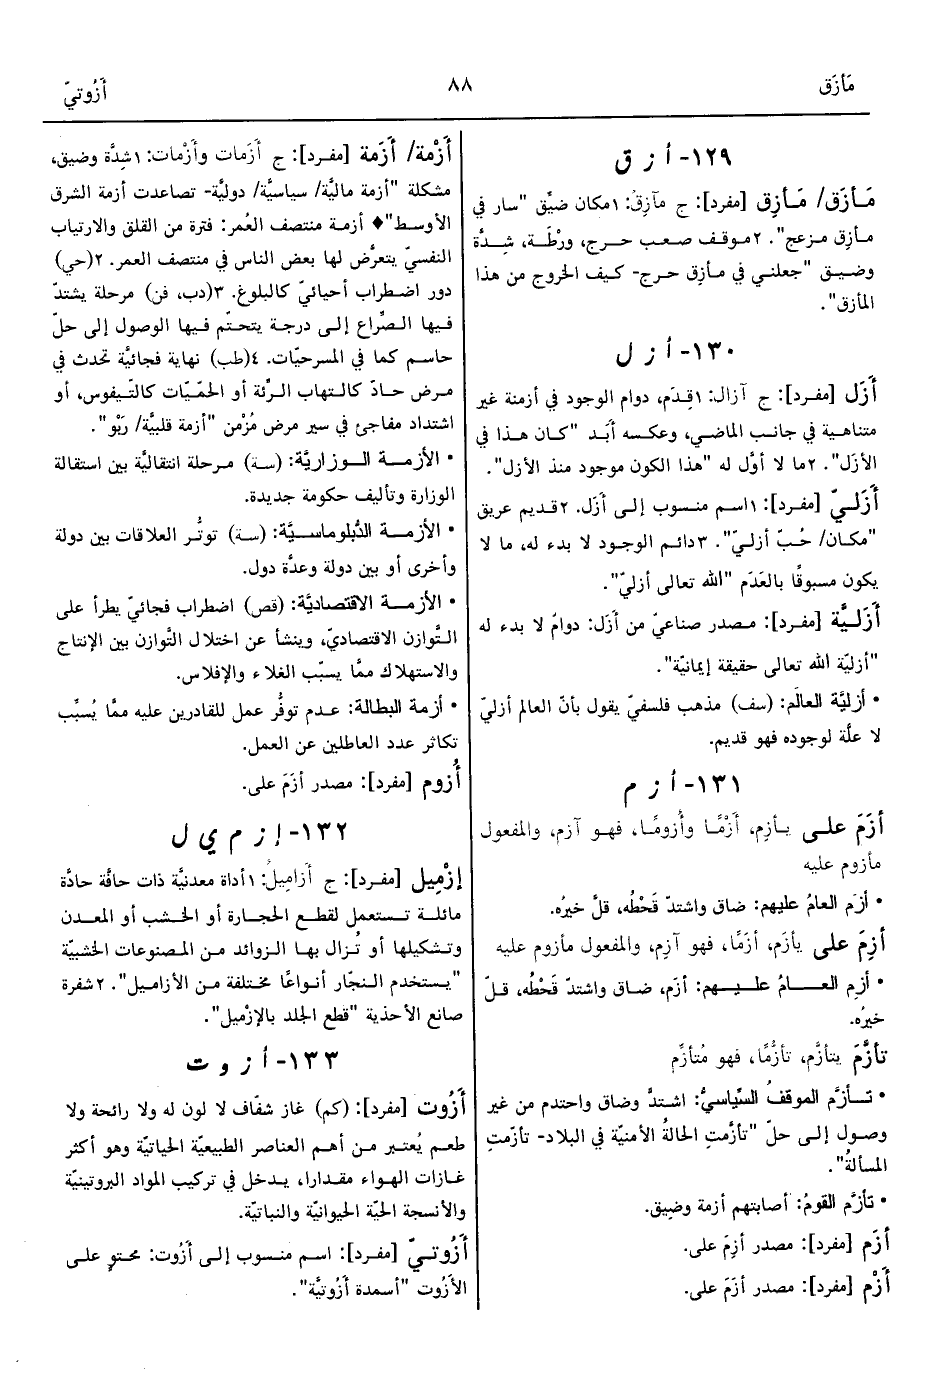 مَأزَق
٨٨
أَزُوتيّ
١٢٩- أ ز ق
مَأزَق/ مَأزِق [مفرد]: ج مآزِقُ: ١مكان ضيِّق "سار في
مأزِق مزعج". ٢موقف صعب حرج، ورْطَة، شِدَّة
وضيق "جعلني في مأزِق حرج- كيف الخروج من هذا
المأزق".
١٣٠- أ ز ل
أَزَل [مفرد]: ج آزال: ١قِدَم، دوام الوجود في أزمنة غير
متناهية في جانب الماضي، وعكسه أَبَد "كان هذا في
الأزَل". ٢ما لا أوَّل له "هذا الكون موجود منذ الأزل".
أَزَليّ [مفرد]: ١اسم منسوب إلى أَزَل. ٢قديم عريق
"مكان/ حُبّ أزليّ". ٣دائم الوجود لا بدء له، ما لا
يكون مسبوقًا بالعَدَم "الله تعالى أزليّ".
أَزَليَّة [مفرد]: مصدر صناعيّ من أَزَل: دوامٌ لا بدء له
"أزليّة الله تعالى حقيقة إيمانيّة".
• أزليَّة العالَم: (سف) مذهب فلسفيّ يقول بأنّ العالم أزليّ
لا علّة لوجوده فهو قديم.
١٣١- أ ز م
أَزَمَ على يـأزِم، أَزْمًا وأُزومًا، فهـو آزِم، والمفعول
مأزوم عليه
• أزَم العامُ عليهم: ضاق واشتدّ قَحْطُه، قلَّ خيرُه.
أَزِمَ على يأزَم، أَزَمًا، فهو آزِم، والمفعول مأزوم عليه
• أزِم العـــامُ عليـــهم: أزَم، ضاق واشتدّ قَحْطُه، قلّ
خيرُه.
تأزَّمَ يتأزَّم، تأزُّمًا، فهو مُتأزِّم
• تـأزَّم الموقفُ السِّياسيُّ: اشتدَّ وضاق واحتدم من غير
وصول إلى حلّ "تأزَّمتِ الحالةُ الأمنيّة في البلاد- تأزّمتِ
المسألةُ".
• تأزَّم القومُ: أصابتهم أزمة وضيق.
أَزَم [مفرد]: مصدر أزِمَ على.
أَزْم [مفرد]: مصدر أزَمَ على.
أَزْمة/ أَزَمة [مفرد]: ج أَزَمات وأَزْمات: ١شِدَّة وضيق،
مشكلة "أزمة ماليَّة/ سياسيَّة/ دوليَّة- تصاعدت أزمة الشرق
الأوسط"♦ أزمة منتصف العُمر: فترة من القلق والارتياب
النفسيّ يتعرَّض لها بعض الناس في منتصف العمر. ٢(حي)
دور اضطراب أحيائيّ كالبلوغ. ٣(دب، فن) مرحلة يشتدّ
فيها الصِّراع إلى درجة يتحتّم فيها الوصول إلى حلّ
حاسم كما في المسرحيّات. ٤(طب) نهاية فجائيَّة تحدث في
مرض حادّ كالتهاب الرِّئة أو الحمّيّات كالتّيفوس، أو
اشتداد مفاجئ في سير مرض مُزْمن "أزمة قلبيَّة/ رَبْو".
• الأزمـة الـوزاريَّة: (سـة) مرحلة انتقاليَّة بين استقالة
الوزارة وتأليف حكومة جديدة.
• الأزمـة الدِّبلوماسـيَّة: (سـة) توتُّر العلاقات بين دولة
وأخرى أو بين دولة وعدَّة دول.
• الأزمـة الاقتصاديَّة: (قص) اضطراب فجائيّ يطرأ على
التَّوازن الاقتصاديّ، وينشأ عن اختلال التَّوازن بين الإنتاج
والاستهلاك ممَّا يسبّب الغلاء والإفلاس.
• أزمة البطالة: عـدم توفُّر عمل للقادرين عليه ممَّا يُسبِّب
تكاثر عدد العاطلين عن العمل.
أُزوم [مفرد]: مصدر أزَمَ على.
١٣٢- إ ز م ي ل
إزْميل [مفرد]: ج أزاميلُ: ١أداة معدنيَّة ذات حافّة حادَّة
مائلـة تـستعمل لقطـع الحجـارة أو الخـشب أو المعدن
وتـشكيلها أو تُـزال بهـا الـزوائد مـن المـصنوعات الخشبيّة
"يستخدم النجّار أنواعًا مختلفة من الأزاميل". ٢شفرة
صانع الأحذية "قطع الجلد بالإزْميل".
١٣٣- أ ز و ت
أَزُوت [مفرد]: (كم) غاز شفّاف لا لون له ولا رائحة ولا
طعم يُعتبـر مـن أهـم العناصر الطبيعيّة الحياتيّة وهو أكثر
غازات الهواء مقدارا، يدخل في تركيب المواد البروتينيّة
والأنسجة الحيّة الحيوانيّة والنباتيّة.
أَزُوتيّ [مفرد]: اسم منسوب إلى أزُوت: محتوٍ على
الأَزُوت "أسمدة أَزُوتيَّة".